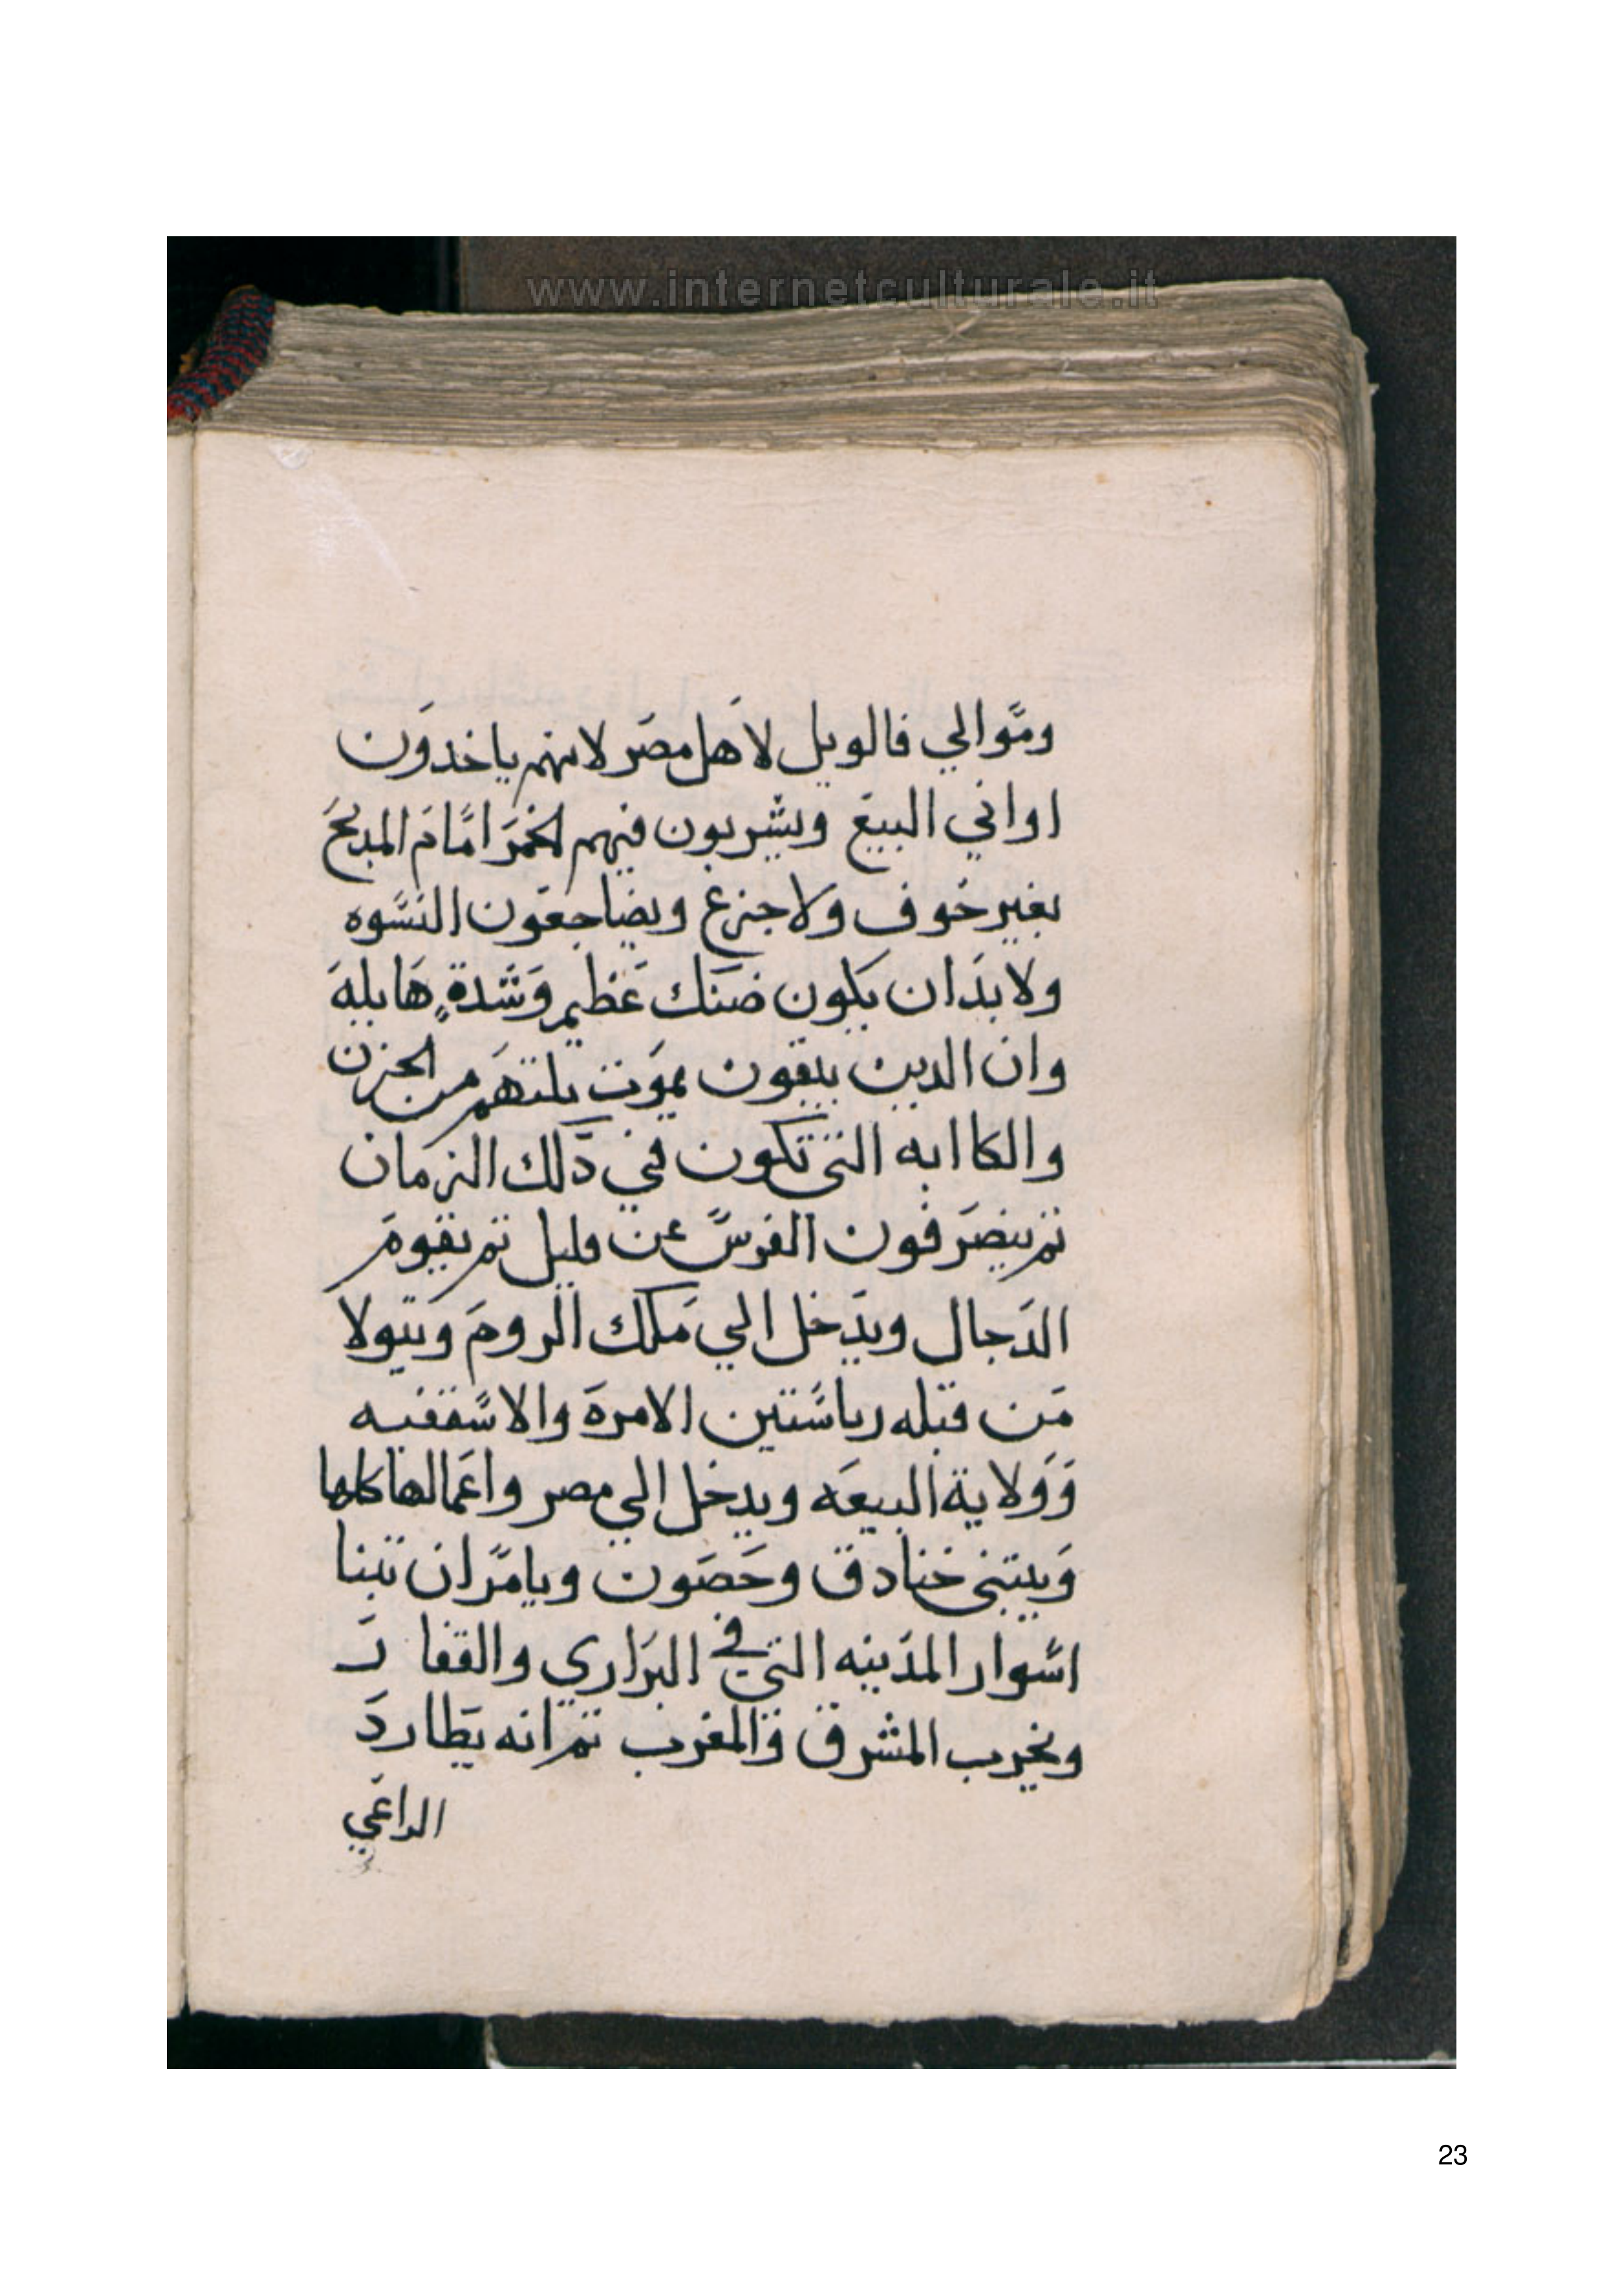 www.internetculturale.it
وموالي فالويل لاهل مصر لانهم ياخدون
اواني البيع ويشربون فيهم الخمر امام المدبح
بغير خوف ولا جزع ويضاجعون النسوه
ولا بد ان يكون ضنك عظيم وشدةٍ هايله
وان الدين يبقون يموت تلتهم من الحزن
والكاابه التي تكون في دلك الزمان
تم ينصرفون الفرس عن قليل تم يقوم
الدجال ويدخل الي ملك الروم ويتولا
من قبله رياستين الامرة والاسقفيه
وولاية البيعه ويدخل الي مصر واعمالها كلها
ويبتني خنادق وحصون ويامر ان تبنا
اسوار المدينه التي في البراري والقفار
ويخرب المشرق والمغرب تم انه يطارد
الراعي
23